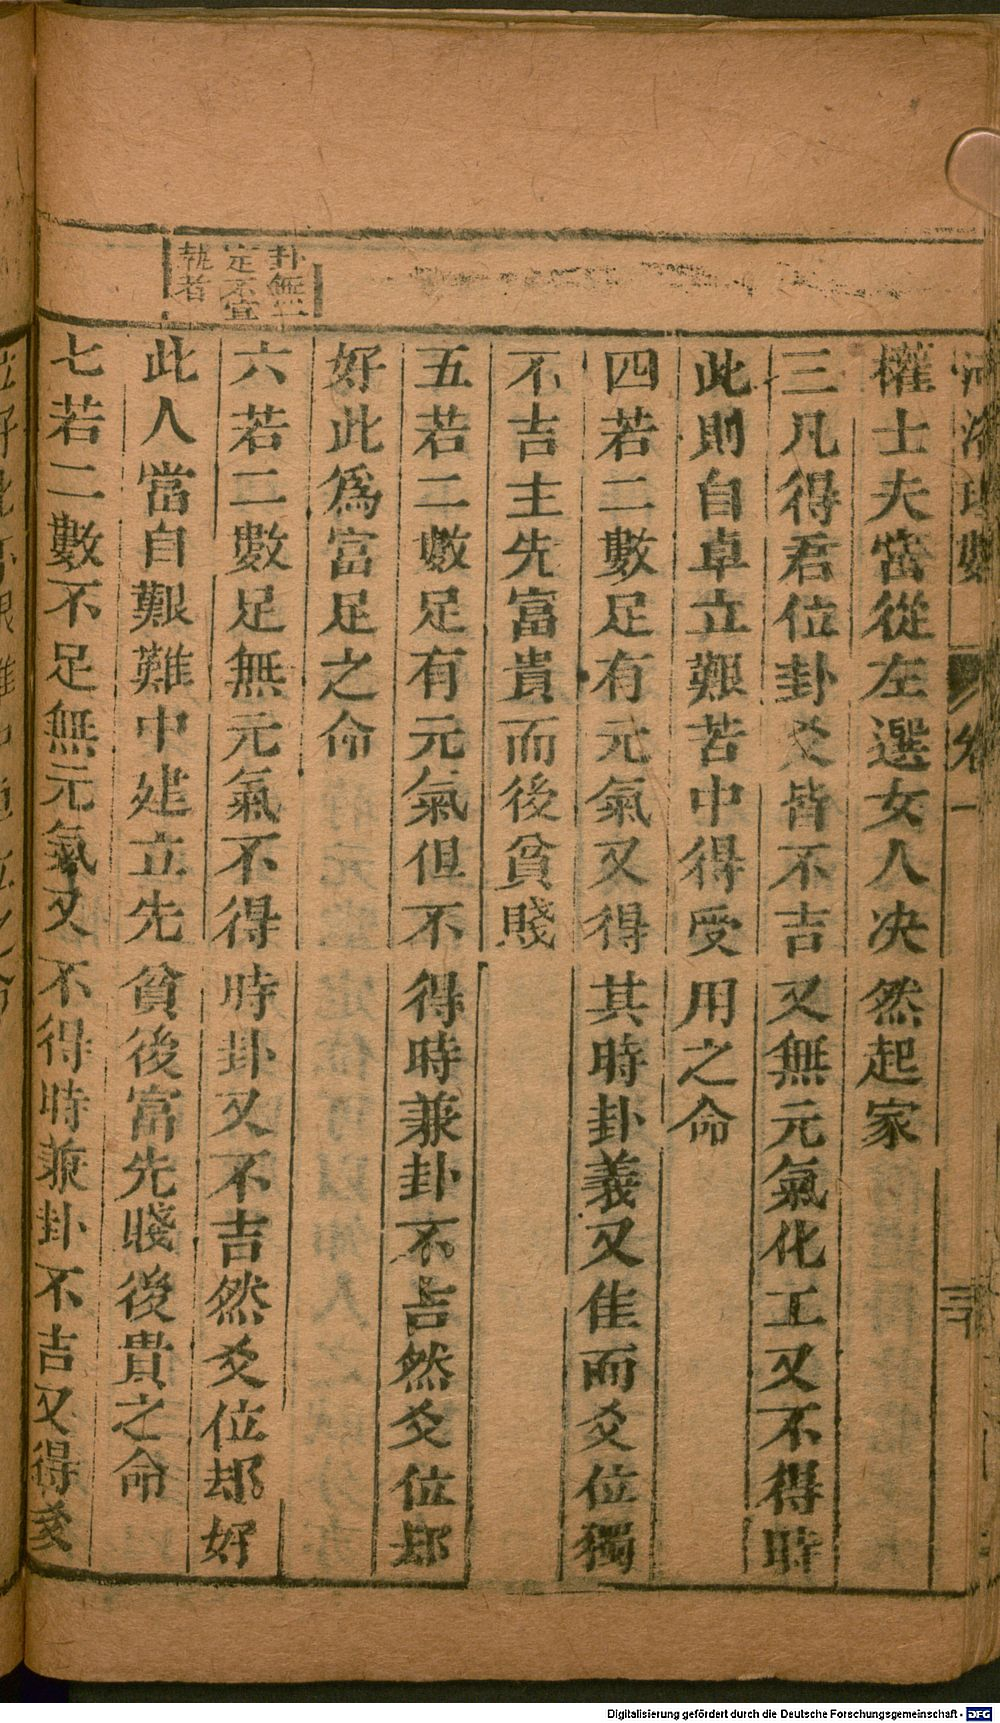 河洛理數 卷一 三十
權士夫當從左選女人决然起家
三凡得君位卦爻皆不吉又無元氣化工又不得時
此則自卓立艱苦中得受用之命
四若二數足有元氣又得其時卦義又佳而爻位獨
不吉主先富貴而後貧賤
五若二數足有元氣但不得時兼卦不吉然爻位却
好此爲富足之命
六若二數足無元氣不得時卦又不吉然爻位却好
此人當自艱難中建立先貧後富先賤後貴之命
七若二數不足無元氣又不得時兼卦不吉又得爻
卦無一
定不宜
執者
Digitalisierung gefördert durch die Deutsche Forschungsgemeinschaft - DFG